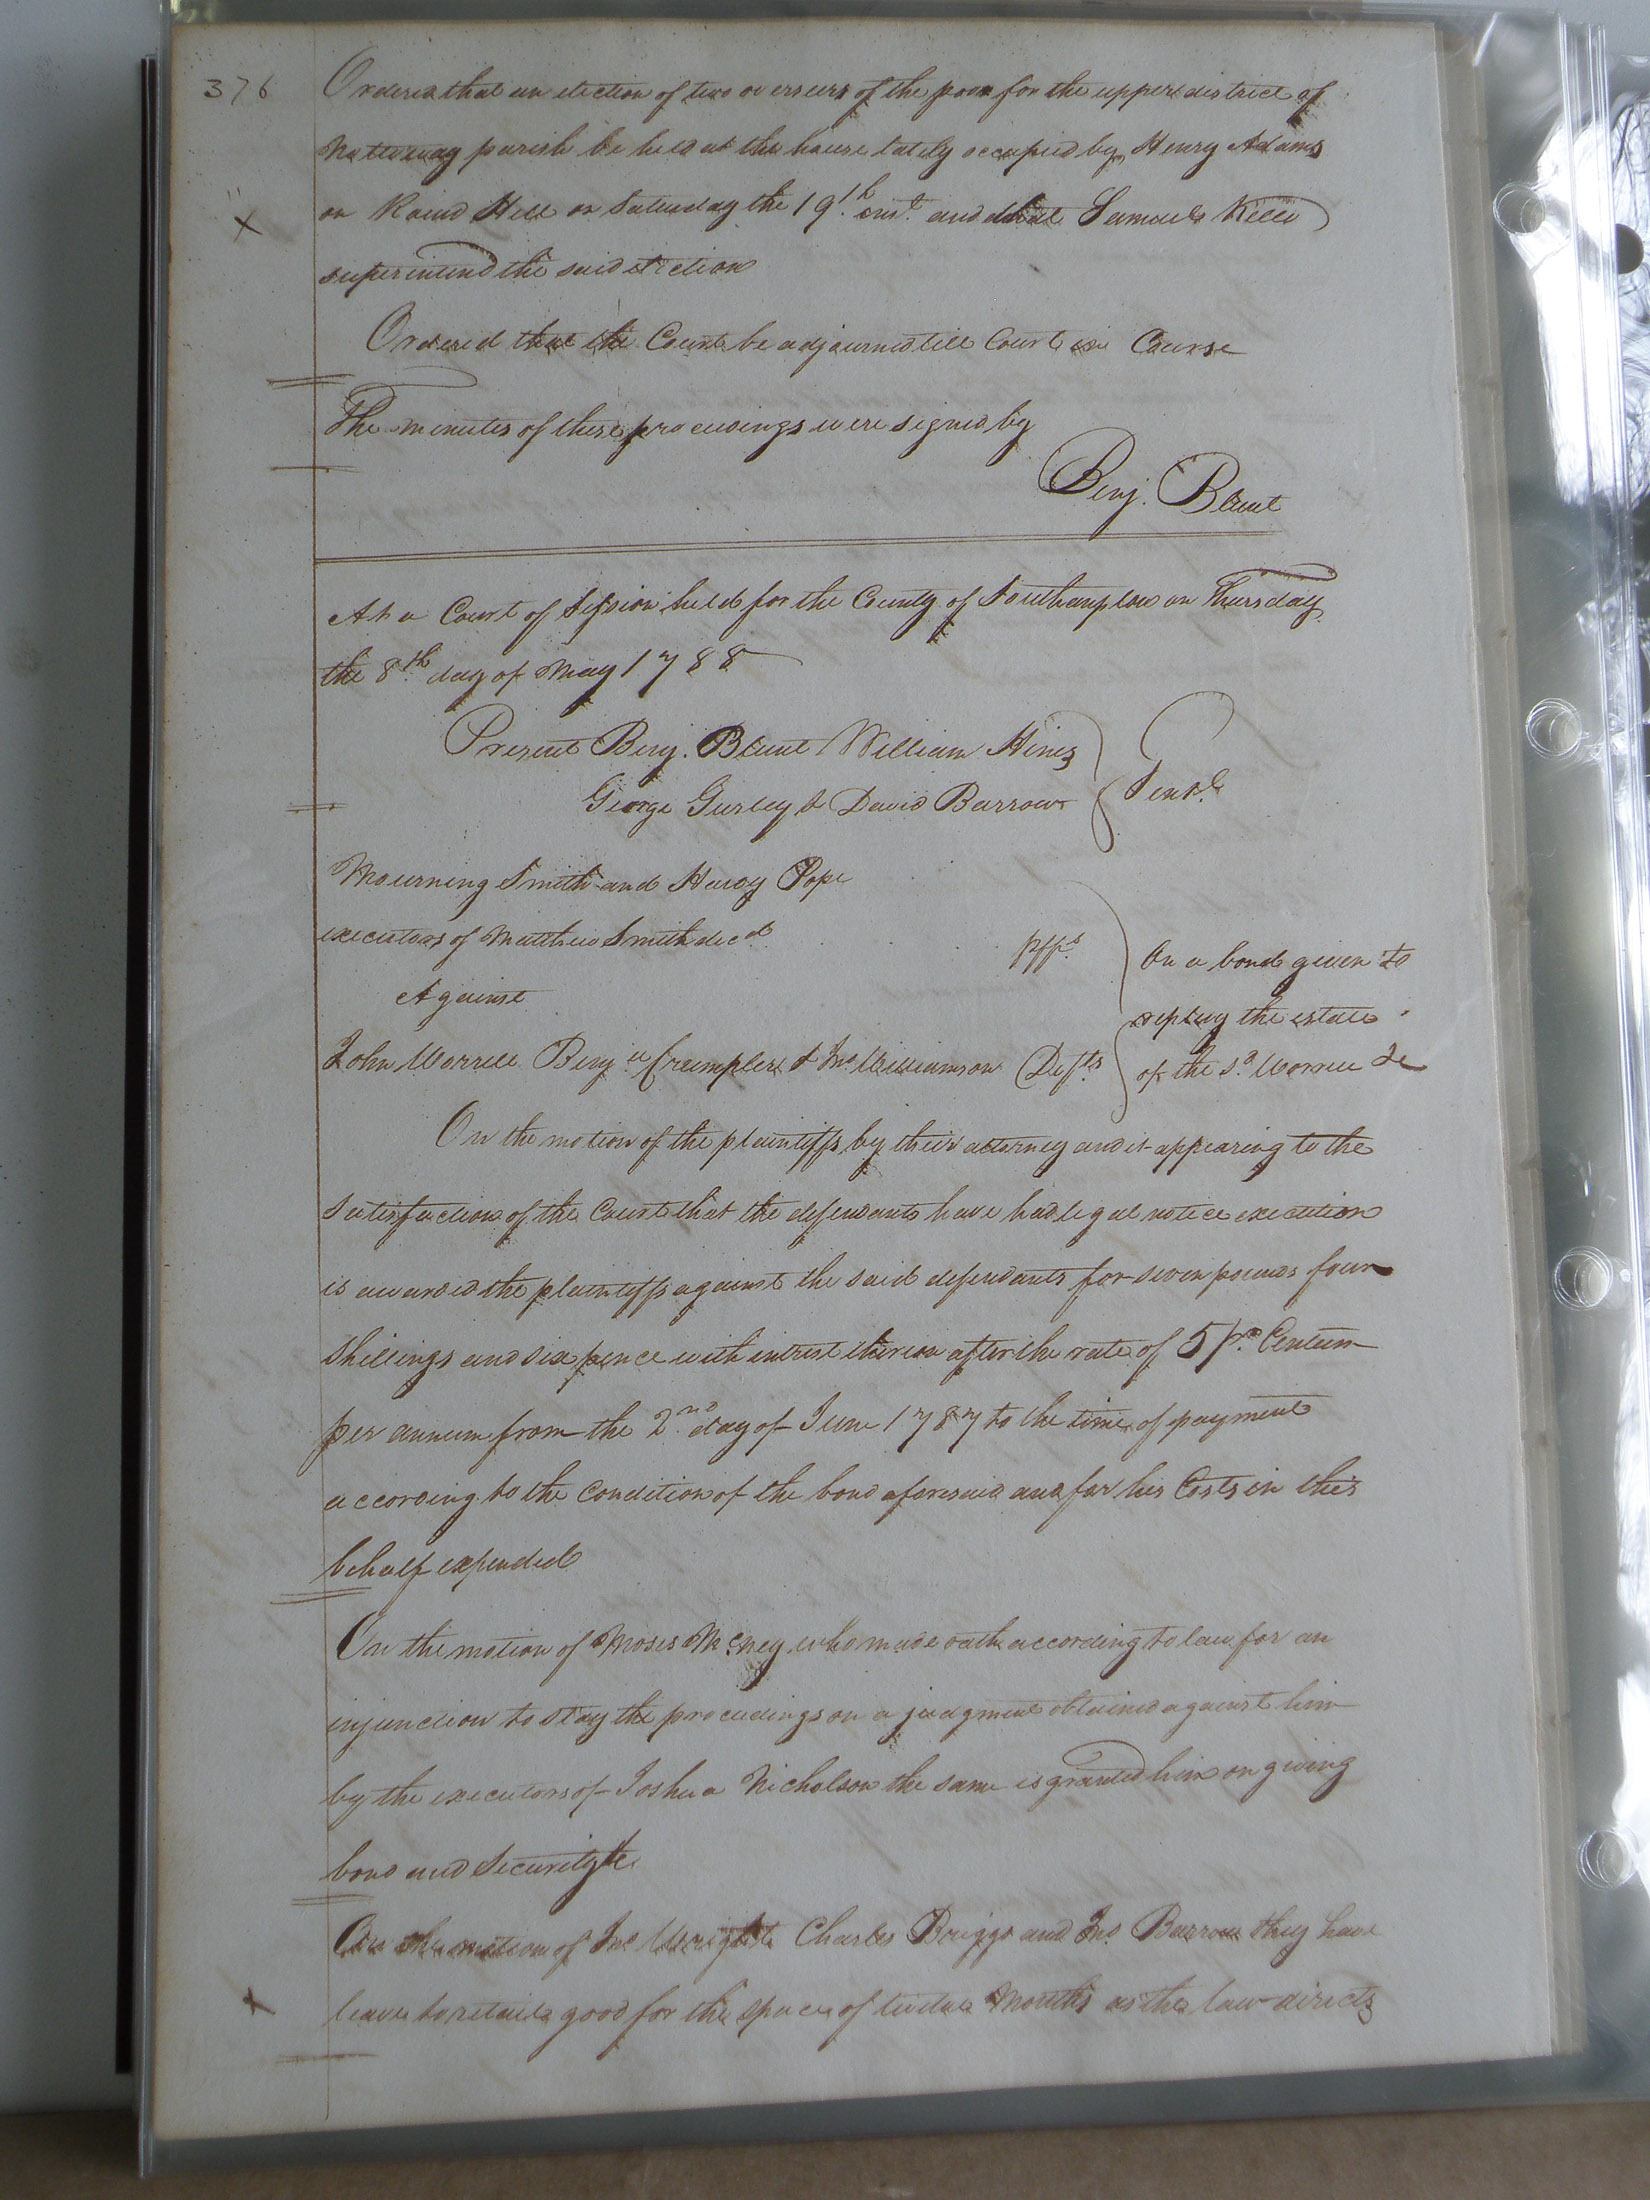 376
Ordered that an election of two overseers of the poor for the upper district of
Nottoway parish be held at the house lately occupied by Henry Adams
on Round Hill on Saturday the 19th. inst. and that Samuel Kello
superintend the said election
Ordered that the Court be adjourned till Court in Course
The minutes of these proceedings were signed by
Benj. Blunt
At a Court of Session held for the County of Southampton on Thursday
the 8th. day of May 1788
Present Benj. Blunt William Hines
George Gurley & David Barrow
Gentl.
Mourning Smith and Hardy Pope
executors of Matthew Smith decd
pffs.
Against
John Worrell Benj.a Crumpler & Jno. Williamson Defts
On a bond given to
replevy the estate
of the sd. Worrell &c
On the motion of the plaintiffs by their attorney and it appearing to the
satisfaction of the Court that the defendants have had legal notice execution
is awarded the plaintiffs against the said defendants for seven pounds four
shillings and six pence with intrest thereon after the rate of 5 pr. Centum
per annum from the 2nd. day of June 1787 to the time of payment
according to the Condition of the bond aforesaid and for his Costs in this
behalf expended
On the motion of Moses McKney who made oath according to law for an
injunction to stay the proceedings on a judgment obtained against him
by the executors of Joshua Nicholson the same is granted him on giving
bond and security &c
On the motion of Jno. Wright Charles Briggs and Jno. Barrow they have
leave to retaile good for the space of twelve Months as the law directs